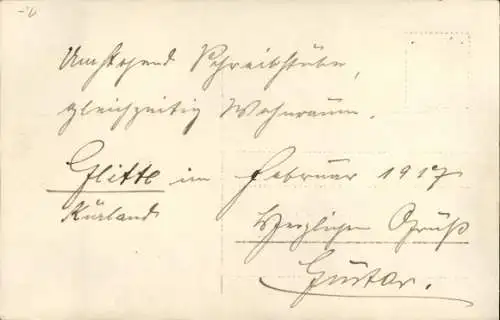 Umstehend Schreibstube,
gleichzeitig Wohnraum.
Glitte im Februar 1917
Kurland
Herzlichen Gruß
Gustav.